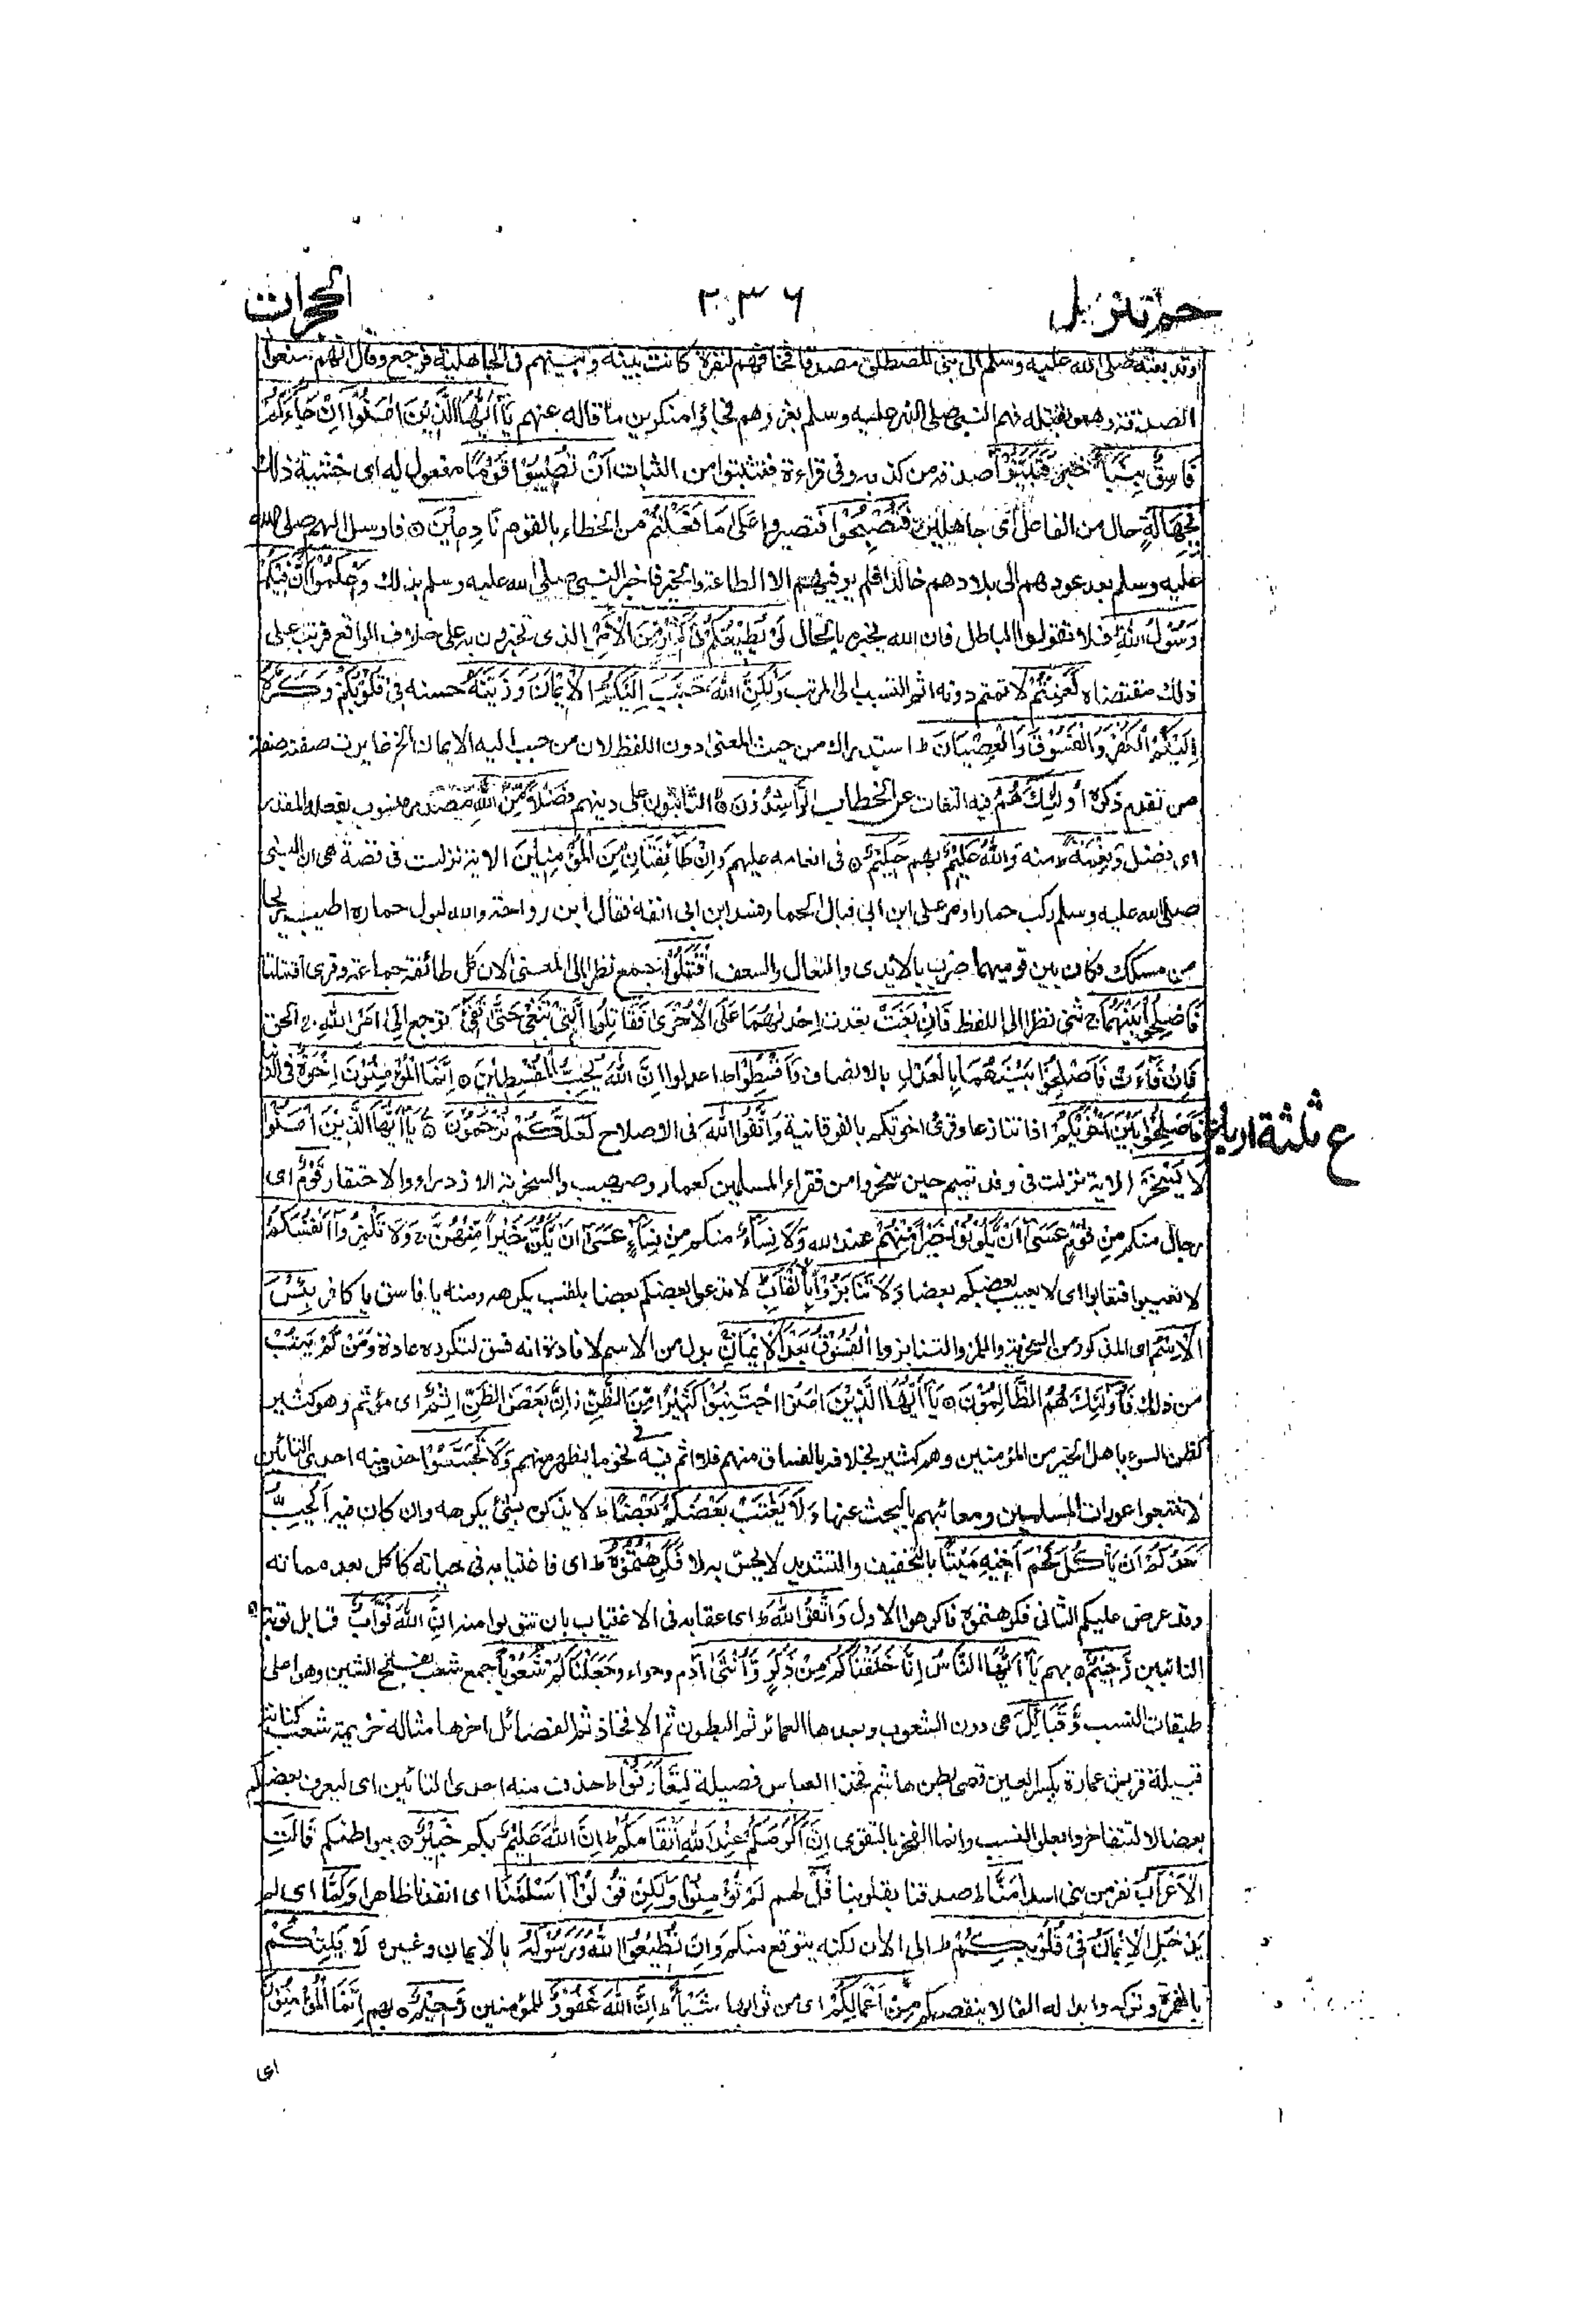 حم تنزيل ٢٣٦ الحجرات
وقد بعثه صلى الله عليه وسلم الى بنى المصطلق مصدقا فخافهم لترة كانت بينه وبينهم فى الجاهلية فرجع وقال انهم منعوا
الصدقة وهموا بقتله فهم النبى صلى الله عليه وسلم بغزوهم فجاؤا منكرين ما قاله عنهم يَآ اَيُّهَا الَّذِيْنَ اٰمَنُوْٓا اِنْ جَآءَكُمْ
فَاسِقٌ بِنَبَاٍ خبر فَتَبَيَّنُوْٓا صدقه من كذبه وفى قراءة فتثبتوا من الثبات اَنْ تُصِيْبُوْا قَوْمًا مفعول له اى خشية ذلك
بِجَهَالَةٍ حال من الفاعل اى جاهلين فَتُصْبِحُوْا فتصيروا عَلٰى مَا فَعَلْتُمْ من الخطاء بالقوم نَادِمِيْنَ ۝ فارسل اليهم صلى الله
عليه وسلم بعد عودهم الى بلادهم خالدا فلم ير فيهم الا الطاعة والخير فاخبر النبى صلى الله عليه وسلم بذلك وَاعْلَمُوْٓا اَنَّ فِيْكُمْ
رَسُوْلَ اللهِ فلا تقولوا الباطل فان الله يخبره بالحال لَوْ يُطِيْعُكُمْ فِىْ كَثِيْرٍ مِّنَ الْاَمْرِ الذى تخبرون به على خلاف الواقع فرتب على
ذلك مقتضاه لَعَنِتُّمْ لاثمتم دونه اثم التسبب الى المرتب وَلٰكِنَّ اللهَ حَبَّبَ اِلَيْكُمُ الْاِيْمَانَ وَزَيَّنَهٗ حسنه فِىْ قُلُوْبِكُمْ وَكَرَّهَ
اِلَيْكُمُ الْكُفْرَ وَالْفُسُوْقَ وَالْعِصْيَانَ ط استدراك من حيث المعنى دون اللفظ لان من حبب اليه الايمان الخ غايرت صفته صفة
من تقدم ذكره اُولٰٓئِكَ هُمُ فيه التفات عن الخطاب الرَّاشِدُوْنَ ۝ الثابتون على دينهم فَضْلًا مِّنَ اللهِ مصدر منصوب بفعله المقدر
اى افضل وَنِعْمَةً ط منه وَاللهُ عَلِيْمٌ بهم حَكِيْمٌ ۝ فى انعامه عليهم وَاِنْ طَآئِفَتَانِ مِنَ الْمُؤْمِنِيْنَ الاية نزلت فى قضة هى ان النبى
صلى الله عليه وسلم ركب حمارا ومر على ابن ابى فبال الحمار فسد ابن ابى انفه فقال ابن رواحة والله لبول حماره اطيب ريحا
من مسكك فكان بين قوميهما ضرب بالايدى والنعال والسعف اقْتَتَلُوْا جمع نظرا الى المعنى لان كل طائفة جماعة وقرئ اقتتلتا
فَاَصْلِحُوْا بَيْنَهُمَا ج ثنى نظرا الى اللفظ فَاِنْ بَغَتْ تعدت اِحْدٰىهُمَا عَلَى الْاُخْرٰى فَقَاتِلُوا الَّتِىْ تَبْغِىْ حَتّٰى تَفِىْٓءَ ترجع اِلٰٓى اَمْرِ اللهِ ج الحق
فَاِنْ فَآءَتْ فَاَصْلِحُوْا بَيْنَهُمَا بِالْعَدْلِ بالانصاف وَاَقْسِطُوْا ط اعدلوا اِنَّ اللهَ يُحِبُّ الْمُقْسِطِيْنَ ۝ اِنَّمَا الْمُؤْمِنُوْنَ اِخْوَةٌ فى الدين
فَاَصْلِحُوْا بَيْنَ اَخَوَيْكُمْ اذا تنازعا وقرئ اخوتكم بالفوقانية وَاتَّقُوا اللهَ فى الاصلاح لَعَلَّكُمْ تُرْحَمُوْنَ ۝ يَآ اَيُّهَا الَّذِيْنَ اٰمَنُوْا
ع ثلثة ارباع
لَا يَسْخَرْ الاية نزلت فى وفد تميم حين سخروا من فقراء المسلمين كعمار وصهيب والسخرية الازدراء والاحتقار قَوْمٌ اى
رجال منكم مِّنْ قَوْمٍ عَسٰٓى اَنْ يَّكُوْنُوْا خَيْرًا مِّنْهُمْ عند الله وَلَا نِسَآءٌ منكم مِّنْ نِّسَآءٍ عَسٰٓى اَنْ يَّكُنَّ خَيْرًا مِّنْهُنَّ ج وَلَا تَلْمِزُوْٓا اَنْفُسَكُمْ
لا تعيبوا فتعابوا اى لا يعيب بعضكم بعضا وَلَا تَنَابَزُوْا بِالْاَلْقَابِ ط لا يدعوا بعضكم بعضا بلقب يكرهه ومنه يا فاسق يا كافر بِئْسَ
الِاسْمُ اى المذكور من السخرية واللمز والتنابز الْفُسُوْقُ بَعْدَ الْاِيْمَانِ بدل من الاسم لافادة انه فسق لتكرره عادة وَمَنْ لَّمْ يَتُبْ
من ذلك فَاُولٰٓئِكَ هُمُ الظَّالِمُوْنَ ۝ يَآ اَيُّهَا الَّذِيْنَ اٰمَنُوا اجْتَنِبُوْا كَثِيْرًا مِّنَ الظَّنِّ ز اِنَّ بَعْضَ الظَّنِّ اِثْمٌ اى مؤثم وهو كثير
كظن السوء باهل الخير من المؤمنين وهم كثير بخلافه بالفساق منهم فلا اثم فيه فى نحو ما يظهر منهم وَّلَا تَجَسَّسُوْا حذف منه احدى التائين
لا تتبعوا عورات المسلمين ومعائبهم بالبحث عنها وَلَا يَغْتَبْ بَّعْضُكُمْ بَعْضًا ط لا يذكره بشئ يكرهه وان كان فيه اَيُحِبُّ
اَحَدُكُمْ اَنْ يَّاْكُلَ لَحْمَ اَخِيْهِ مَيْتًا بالتخفيف والتشديد لا يحس به لا فَكَرِهْتُمُوْهُ ط اى فاغتيابه فى حياته كاكل بعد مماته
وقد عرض عليكم الثانى فكرهتموه فاكرهوا الاول وَاتَّقُوا اللهَ ط اى عقابه فى الاغتياب بان تتوبوا منه اِنَّ اللهَ تَوَّابٌ قابل توبة
التائبين رَّحِيْمٌ ۝ بهم يَآ اَيُّهَا النَّاسُ اِنَّا خَلَقْنَاكُمْ مِّنْ ذَكَرٍ وَّاُنْثٰى آدم وحواء وَجَعَلْنَاكُمْ شُعُوْبًا جمع شعب بفتح الشين وهو اعلى
طبقات النسب وَّقَبَآئِلَ هى دون الشعوب وبعدها العمائر ثم البطون ثم الافخاذ ثم الفصائل اخرها مثاله خزيمة شعب كنانة
قبيلة قريش عمارة بكسر العين قصى بطن هاشم فخذ العباس فصيلة لِتَعَارَفُوْا ط حذف منه احدى التائين اى ليعرف بعضكم
بعضا لا لتتفاخروا بعلو النسب وانما الفخر بالتقوى اِنَّ اَكْرَمَكُمْ عِنْدَ اللهِ اَتْقَاكُمْ ط اِنَّ اللهَ عَلِيْمٌ بكم خَبِيْرٌ ۝ ببواطنكم قَالَتِ
الْاَعْرَابُ نفر من بنى اسد اٰمَنَّا ط صدقنا بقلوبنا قُلْ لهم لَّمْ تُؤْمِنُوْا وَلٰكِنْ قُوْلُوْٓا اَسْلَمْنَا اى انقدنا ظاهرا وَلَمَّا اى لم
يَدْخُلِ الْاِيْمَانُ فِىْ قُلُوْبِكُمْ ط الى الان لكنه يتوقع منكم وَاِنْ تُطِيْعُوا اللهَ وَرَسُوْلَهٗ بالايمان وغيره لَا يَلِتْكُمْ
بالهمزة وتركه وابداله الفا لا ينقصكم مِّنْ اَعْمَالِكُمْ اى من ثوابها شَيْئًا ط اِنَّ اللهَ غَفُوْرٌ للمؤمنين رَّحِيْمٌ ۝ بهم اِنَّمَا الْمُؤْمِنُوْنَ
اى